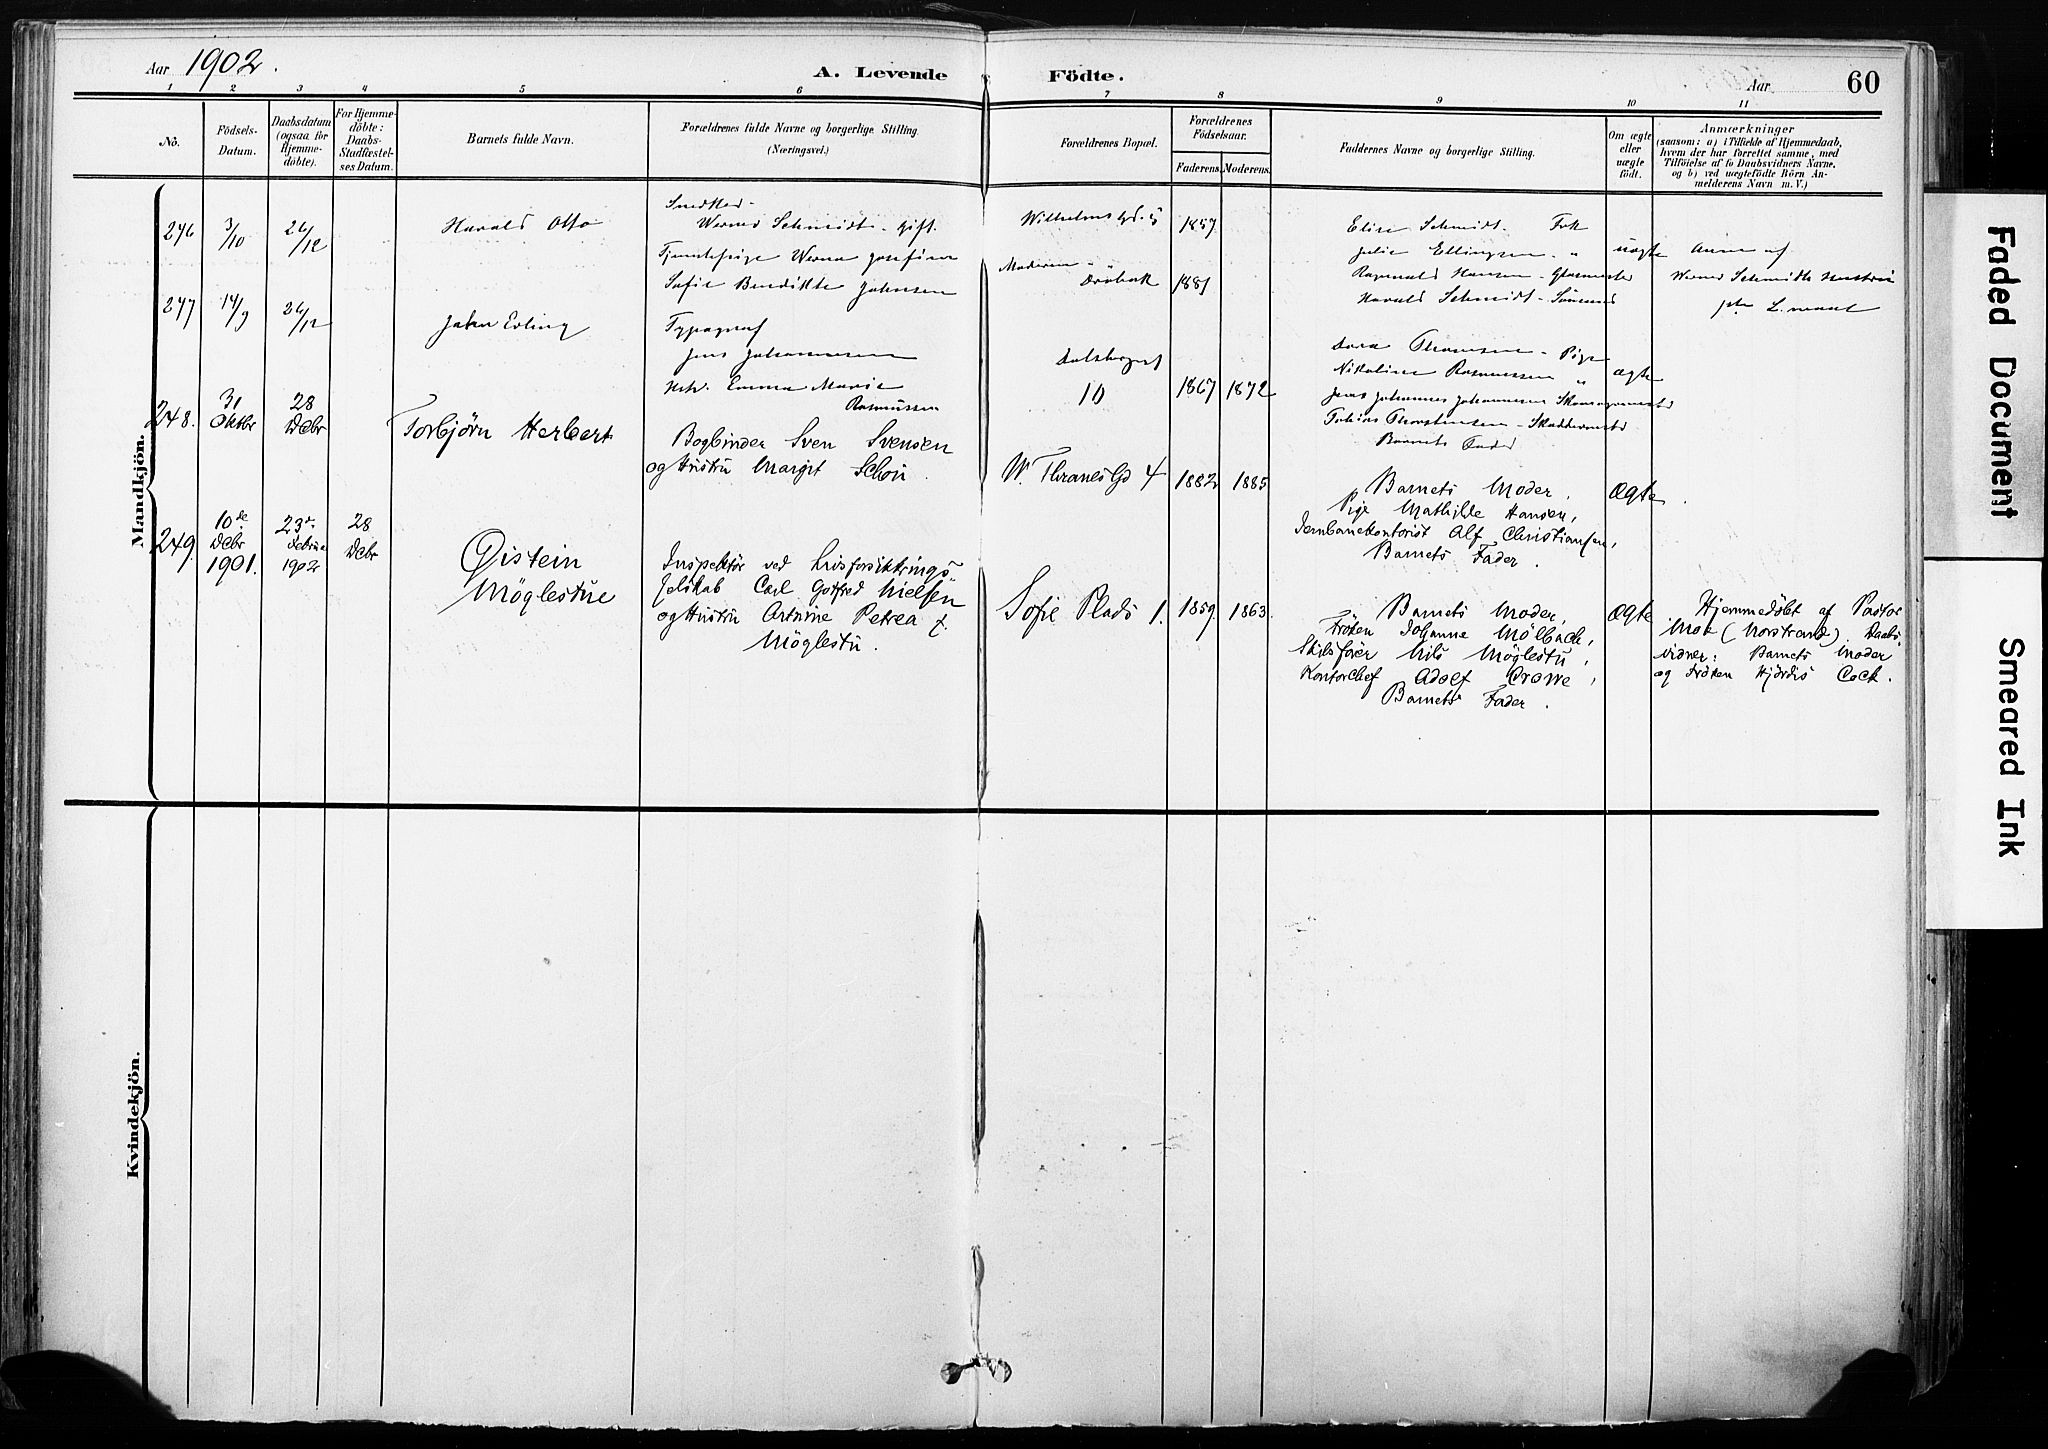 Aar 1902.
A. Levende Födte.
Aar
60
1 2 3 4 5 6 7 8 9 10 11
No.
Födsels-
Datum.
Daabsdatum
(ogsaa for
Hjemme-
döbte).
For Hjemme-
döbte:
Daabs-
Stadfæstel-
ses Datum.
Barnets fulde Navn.
Forældrenes fulde Navne og borgerlige Stilling.
(Næringsvei.)
Forældrenes Bopæl.
Forældrenes
Födselsaar.
Faderens. Moderens.
Faddernes Navne og borgerlige Stilling.
Om ægte
eller
uægte
födt.
Anmærkninger
(saasom: a) i Tilfælde af Hjemmedaab,
hvem der har forrettet samme, med
Tilföielse af to Daabsvidners Navne,
og b) ved uægtefödte Börn An-
melderens Navn m. V.)
Mandkjön.
246 3/10 26/12
Harald Otto
Snedker
Werner Schmidt - gift.
Tjenestepige Werna Josefine
Sofie Benedikte Johnsen
Wilhelms Gd. 5
Moderen -
Dröbak
1857
1881
Elise Schmidt. Frk
Julie Ellingsen "
Ragnvald Hansen - Glasmester
Harald Schmidt - Sömand
uægte
Anm af
Werner Schmidts Hustru
247 14/9 26/12
John Erling
Typograf
Jens Johannessen
Hstr. Emma Marie
Rasmussen
Dalsbergst
10
1867 1872
Dora Thomsen - Pige
Nikoline Rasmussen "
Jens Johannes Johannessen Skomagermester
Tobias Thorstensen - Skreddermester
Barnets Fader
ægte
248. 31 Oktbr 28 Dcbr
Torbjörn Herbert
Bogbinder Sven Svensen
og Hustru Margit Schou.
W. Thranes Gd 4
1882 1885
Barnets Moder,
Pige Mathilde Hansen,
Jernbanekontorist Alf Christiansen,
Barnets Fader.
ægte.
249. 10de Dcbr 1901. 23de Februar 1902 28 Dcbr
Øistein
Möglestue
Inspektör ved Livsforsikkrings-
selskab Carl Gotfred Nielsen
og Hustru Arthine Petrea f.
Möglestu.
Sofie Plads 1.
1859. 1863.
Barnets Moder,
Fröken Johanne Mölbach,
Skibsförer Nils Möglestu,
Kontorchef Adolf Crowe,
Barnets Fader.
ægte
Hjemmedöbt af Pastor
Moe (Norstrand). Daabs-
vidner: Barnets Moder
og Fröken Hjördis Cock.
Kvindekjön.
Faded Document
Smeared Ink